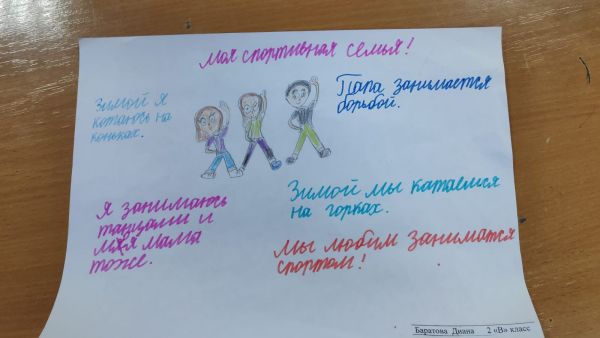 Моя спортивная семья!
Зимой я
катаюсь на
коньках.
Папа занимается
борьбой.
Я занимаюсь
танцами и
моя мама
тоже.
Зимой мы катаемся
на горках.
Мы любим заниматся
спортом!
Баратова Диана 2 «В» класс